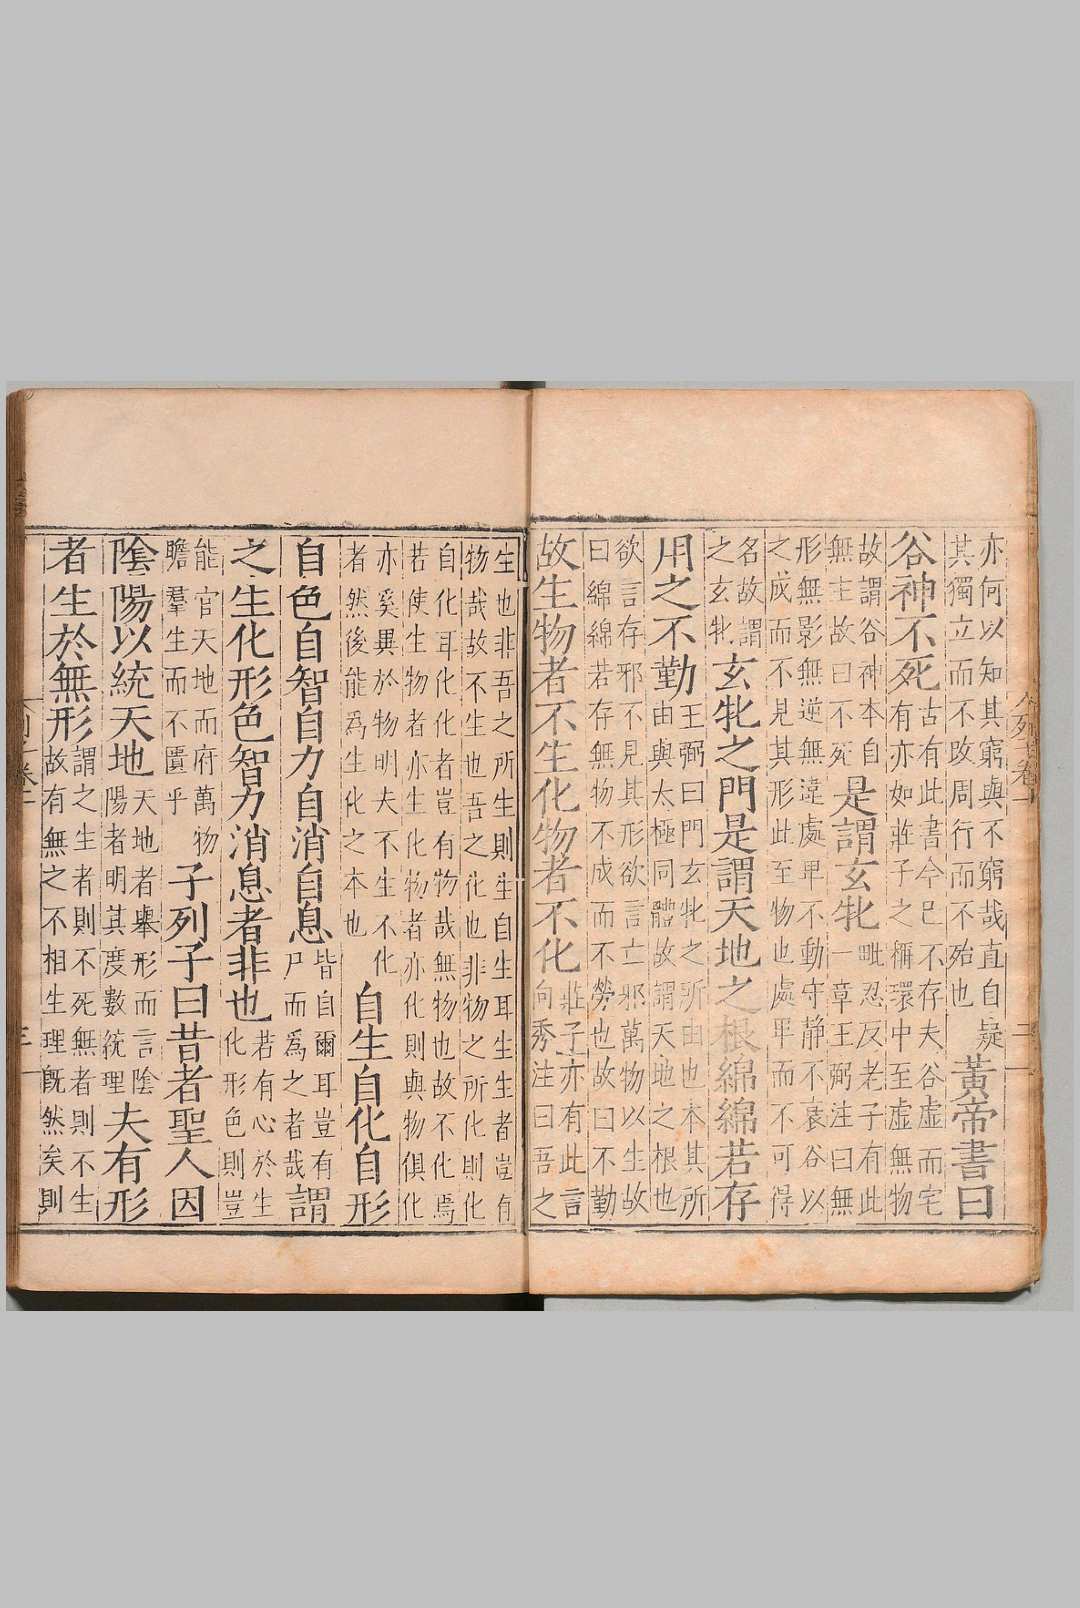 亦何以知其窮與不窮哉直自疑
其獨立而不改周行而不殆也
黃帝書曰
谷神不死
古有此書今已不存夫谷虛而宅
有亦如莊子之稱環中至虛無物
故謂谷神本自
無主故曰不死
是謂玄牝
毗忍反老子有此
一章王弼注曰無
形無影無逆無違處卑不動守靜不衰谷以
之成而不見其形此至物也處卑而不可得
名故謂
之玄牝
玄牝之門是謂天地之根綿綿若存
用之不勤
王弼曰門玄牝之所由也本其所
由與太極同體故謂天地之根也
欲言存邪不見其形欲言亡邪萬物以生故
曰綿綿若存無物不成而不勞也故曰不勤
故生物者不生化物者不化
莊子亦有此言
向秀注曰吾之
生也非吾之所生則生自生耳生生者豈有
物哉故不生也吾之化也非物之所化則化
自化耳化化者豈有物哉無物也故不化焉
若使生物者亦生化物者亦化則與物俱化
亦奚異於物明夫不生不化
者然後能爲生化之本也
自生自化自形
自色自智自力自消自息
皆自爾耳豈有
尸而爲之者哉
謂
之生化形色智力消息者非也
若有心於生
化形色則豈
能官天地而府萬物
瞻羣生而不匱乎
子列子曰昔者聖人因
陰陽以統天地
天地者舉形而言陰
陽者明其度數統理
夫有形
者生於無形
謂之生者則不死無者則不生
故有無之不相生理旣然矣則